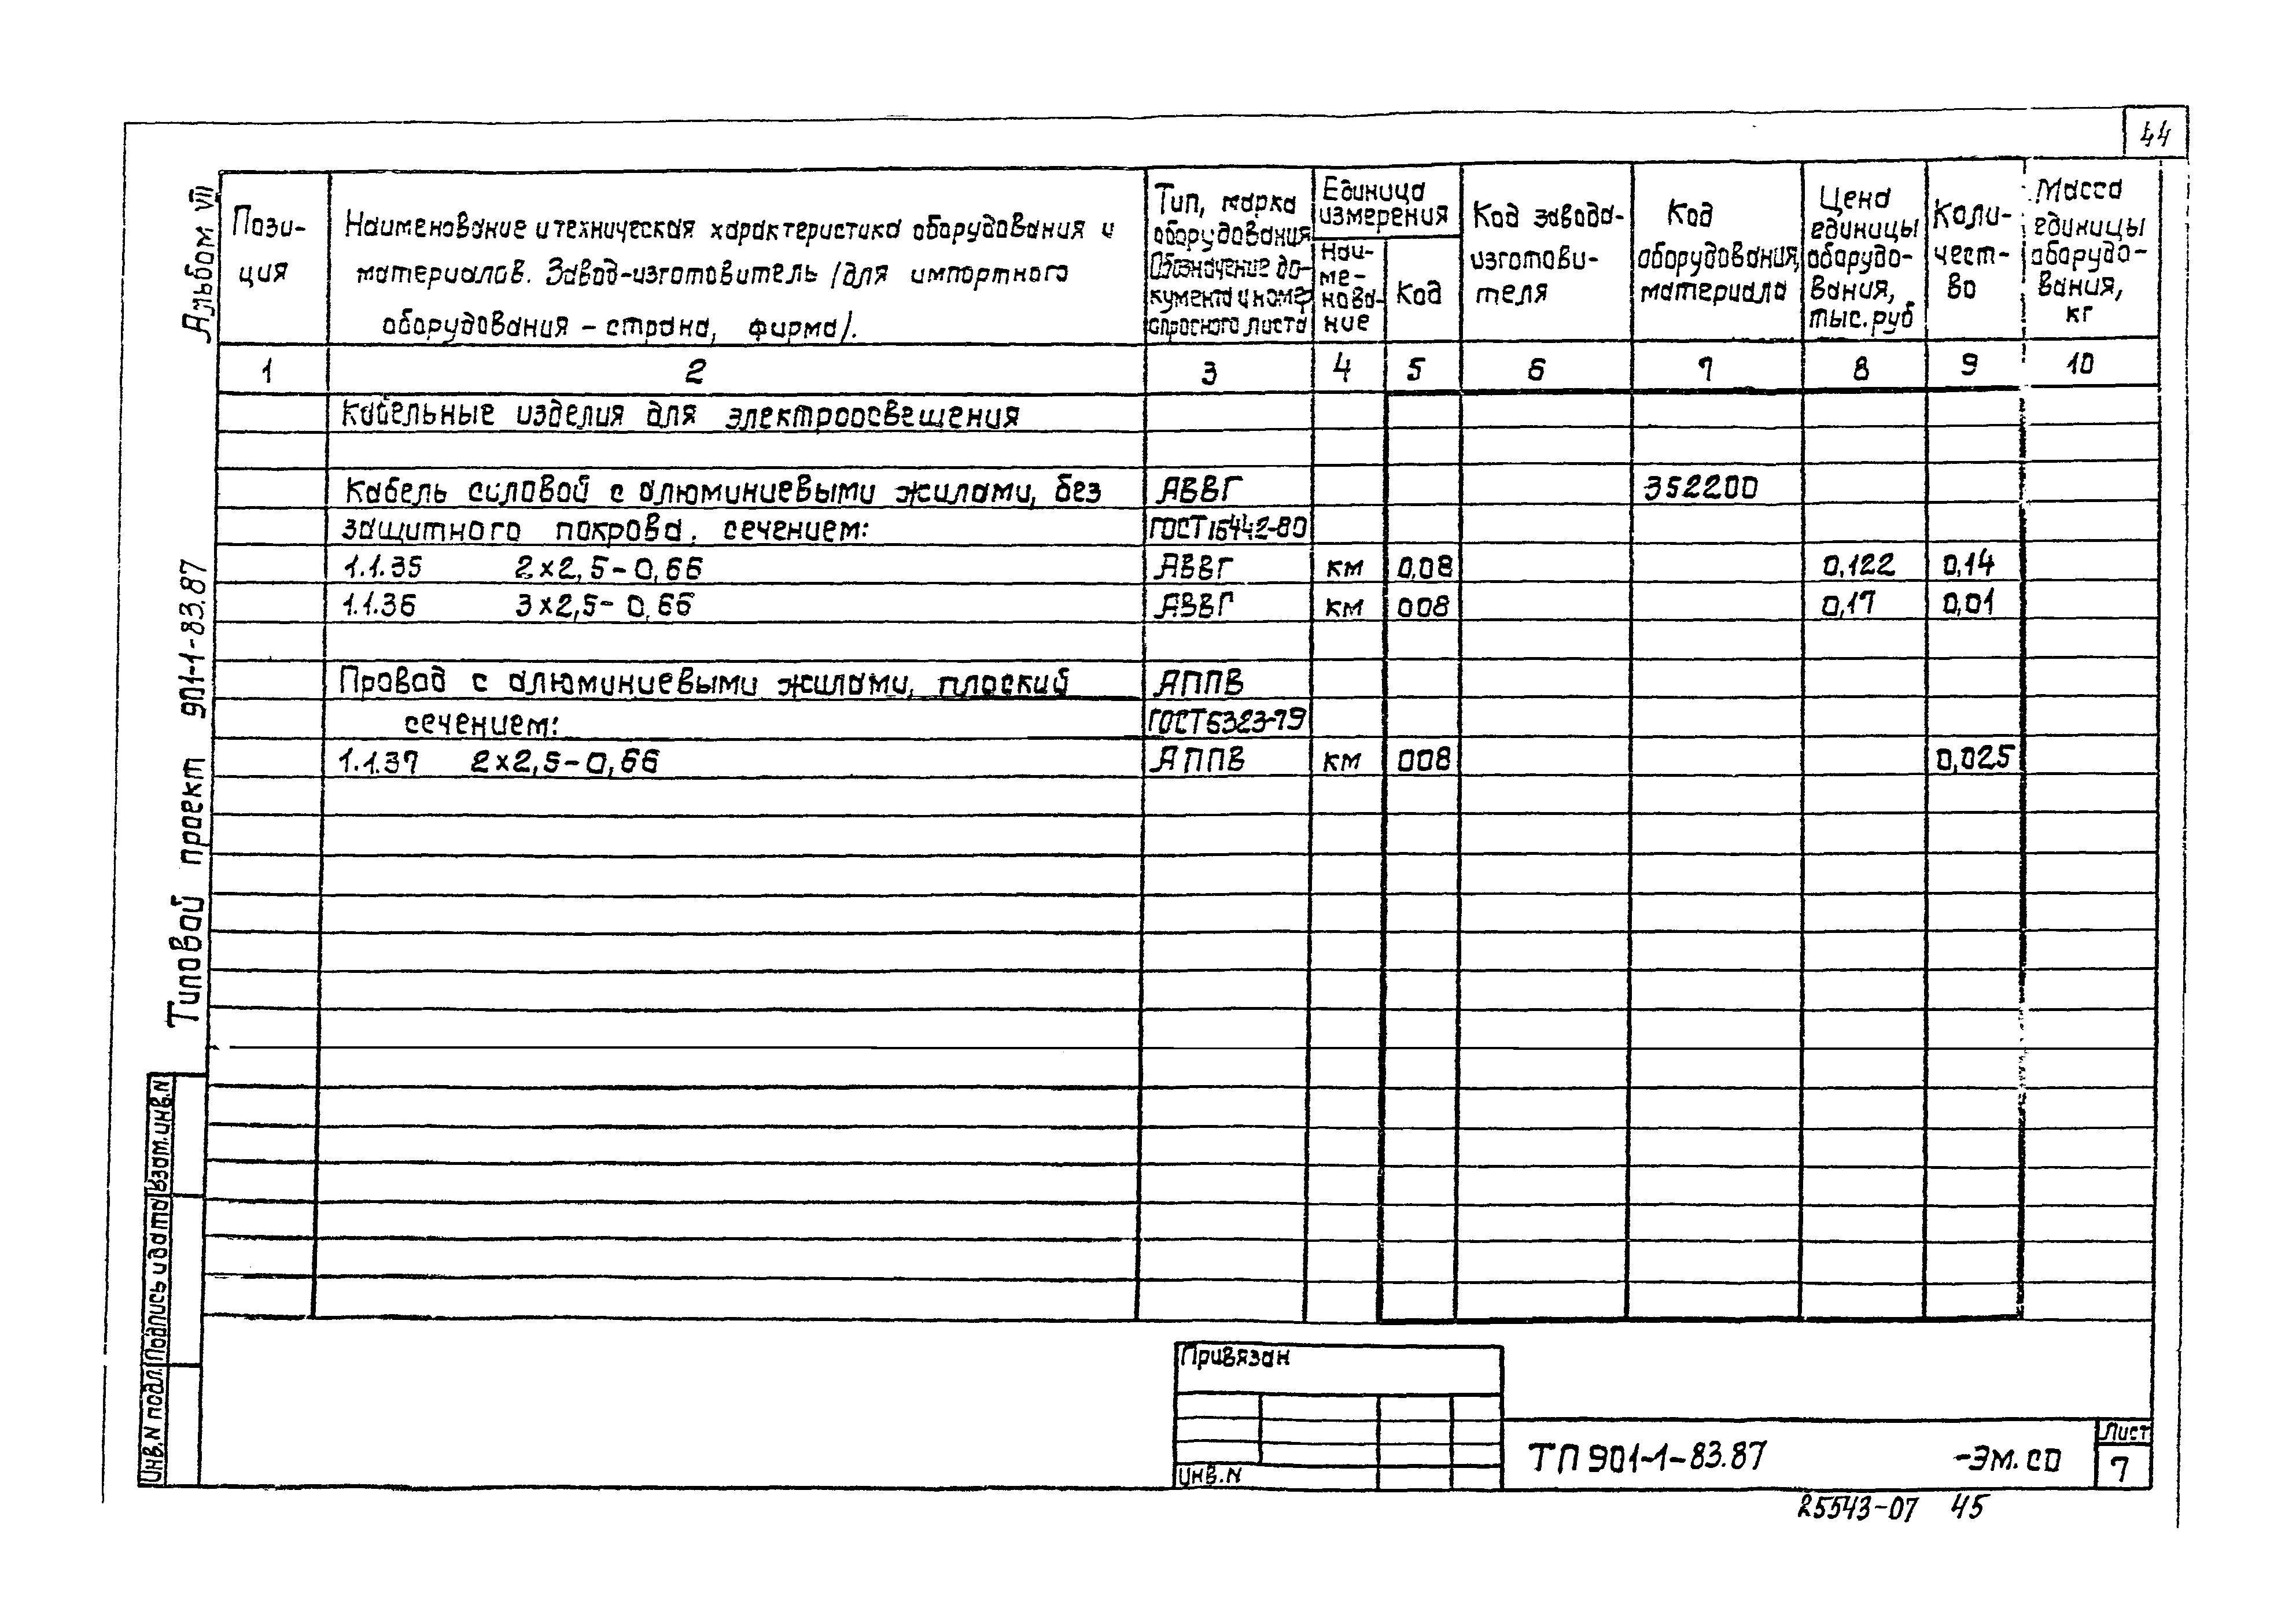 44
Альбом VII
Типовой проект 901-1-83.87
Взам.инв.N
Подпись и дата
Инв.N подл.
Пози-
ция
Наименование и техническая характеристика оборудования и
материалов. Завод-изготовитель /для импортного
оборудования - страна, фирма/.
Тип, марка
оборудования
Обозначение до-
кумента и номер
опросного листа
Единица
измерения
Наи-
ме-
нова-
ние
Код
Код завода-
изготови-
теля
Код
оборудования,
материала
Цена
единицы
оборудо-
вания,
тыс.руб
Коли-
чест-
во
Масса
единицы
оборудо-
вания,
кг
1 2 3 4 5 6 7 8 9 10
Кабельные изделия для электроосвещения
Кабель силовой с алюминиевыми жилами, без АВВГ 352200
защитного покрова. сечением: ГОСТ 16442-80
1.1.35 2x2,5-0,66 АВВГ км 0,08 0,122 0,14
1.1.36 3x2,5-0,66 АВВГ км 008 0,17 0,01
Провод с алюминиевыми жилами, плоский АППВ
сечением: ГОСТ 6323-79
1.1.37 2x2,5-0,66 АППВ км 008 0,025
Привязан
Инв.N
ТП 901-1-83.87 -ЭМ.СО
Лист
7
25543-07 45